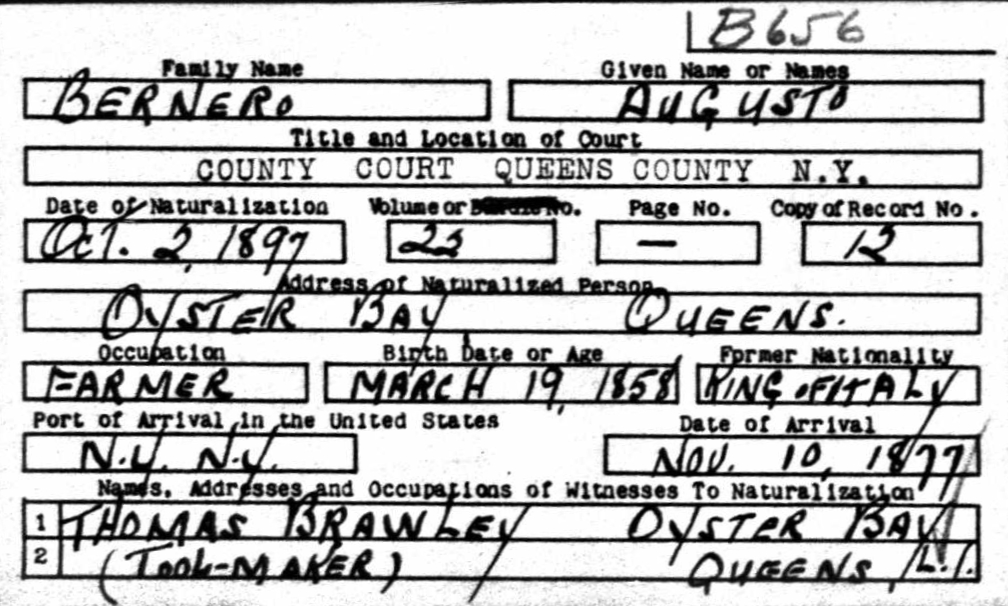 B656
Family Name Given Name or Names
BERNERO AUGUSTO
Title and Location of Court
COUNTY COURT QUEENS COUNTY N.Y.
Date of Naturalization Volume or No. Page No. Copy of Record No.
OCT. 2, 1897 — 12
Address of Naturalized Person
OYSTER BAY QUEENS.
Occupation Birth Date or Age Former Nationality
FARMER MARCH 19, 1858 KING OF ITALY
Port of Arrival in the United States Date of Arrival
N.Y. N.Y. NOV. 10, 1877
Names, Addresses and Occupations of Witnesses To Naturalization
1 THOMAS BRAWLEY OYSTER BAY
2 (TOOL-MAKER) QUEENS, L.I.